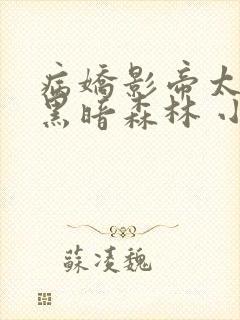 病嬌影帝太
黑暗森林 小
蘇淩魏